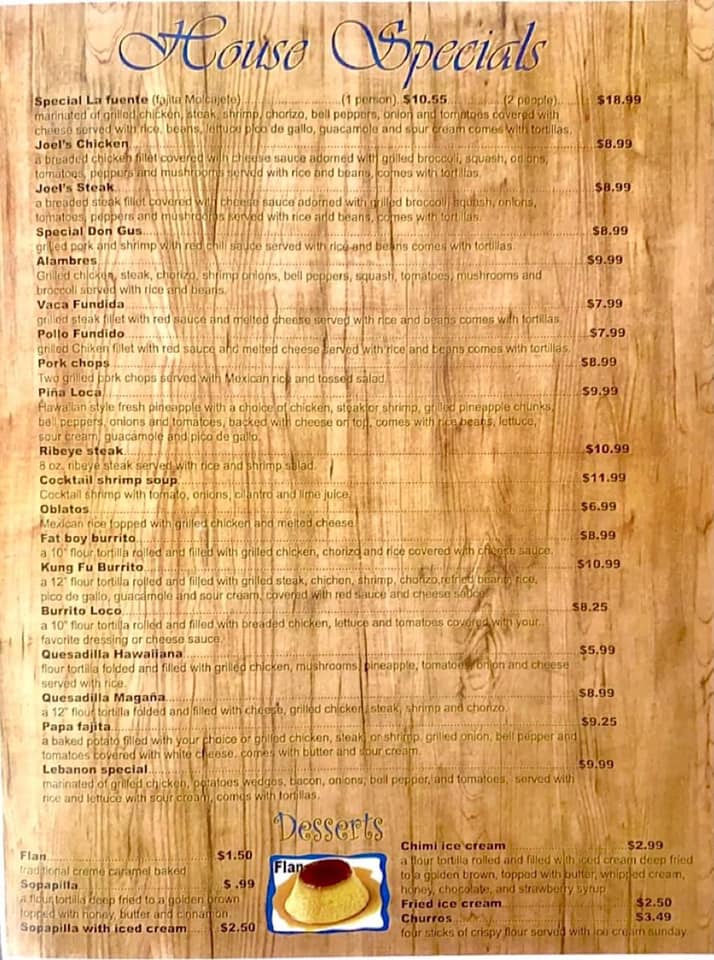 House Specials
Special La fuente (fajita Molcajete) (1 person) $10.55 (2 people) $18.99
marinated of grilled chicken, steak, shrimp, chorizo, bell peppers, onion and tomatoes covered with
cheese served with rice, beans, lettuce pico de gallo, guacamole and sour cream comes with tortillas.
Joel's Chicken $8.99
a breaded chicken fillet covered with cheese sauce adorned with grilled broccoli, squash, onions,
tomatoes, peppers and mushrooms served with rice and beans, comes with tortillas.
Joel's Steak $8.99
a breaded steak fillet covered with cheese sauce adorned with grilled broccoli, squash, onions,
tomatoes, peppers and mushrooms served with rice and beans, comes with tortillas.
Special Don Gus $8.99
grilled pork and shrimp with red chili sauce served with rice and beans comes with tortillas.
Alambres $9.99
Grilled chicken, steak, chorizo, shrimp onions, bell peppers, squash, tomatoes, mushrooms and
broccoli served with rice and beans.
Vaca Fundida $7.99
grilled steak fillet with red sauce and melted cheese served with rice and beans comes with tortillas.
Pollo Fundido $7.99
grilled Chiken fillet with red sauce and melted cheese served with rice and beans comes with tortillas.
Pork chops $8.99
Two grilled pork chops served with Mexican rice and tossed salad.
Piña Loca $9.99
Hawaiian style fresh pineapple with a choice of chicken, steak or shrimp, grilled pineapple chunks,
bell peppers, onions and tomatoes, backed with cheese on top, comes with rice beans, lettuce,
sour cream, guacamole and pico de gallo.
Ribeye steak $10.99
8 oz. ribeye steak served with rice and shrimp salad.
Cocktail shrimp soup $11.99
Cocktail shrimp with tomato, onions, cilantro and lime juice.
Oblatos $6.99
Mexican rice topped with grilled chicken and melted cheese.
Fat boy burrito $8.99
a 10" flour tortilla rolled and filled with grilled chicken, chorizo and rice covered with cheese sauce.
Kung Fu Burrito $10.99
a 12" flour tortilla rolled and filled with grilled steak, chichen, shrimp, chorizo, refried beans, rice,
pico de gallo, guacamole and sour cream, covered with red sauce and cheese sauce.
Burrito Loco $8.25
a 10" flour tortilla rolled and filled with breaded chicken, lettuce and tomatoes covered with your
favorite dressing or cheese sauce.
Quesadilla Hawaiiana $5.99
flour tortilla folded and filled with grilled chicken, mushrooms, pineapple, tomatoes, onion and cheese
served with rice.
Quesadilla Magaña $8.99
a 12" flour tortilla folded and filled with cheese, grilled chicken, steak, shrimp and chorizo.
Papa fajita $9.25
a baked potato filled with your choice of grilled chicken, steak, or shrimp, grilled onion, bell pepper and
tomatoes covered with white cheese. comes with butter and sour cream.
Lebanon special $9.99
marinated of grilled chicken, potatoes wedges, bacon, onions, bell pepper, and tomatoes, served with
rice and lettuce with sour cream, comes with tortillas.
Desserts
Flan $1.50
traditional creme caramel baked
Sopapilla $ .99
a flour tortilla deep fried to a golden brown
topped with honey, butter and cinnamon
Sopapilla with iced cream $2.50
Flan
Chimi ice cream $2.99
a flour tortilla rolled and filled with iced cream deep fried
to a golden brown, topped with butter, whipped cream,
honey, chocolate, and strawberry syrup
Fried ice cream $2.50
Churros $3.49
four sticks of crispy flour served with ice cream sunday